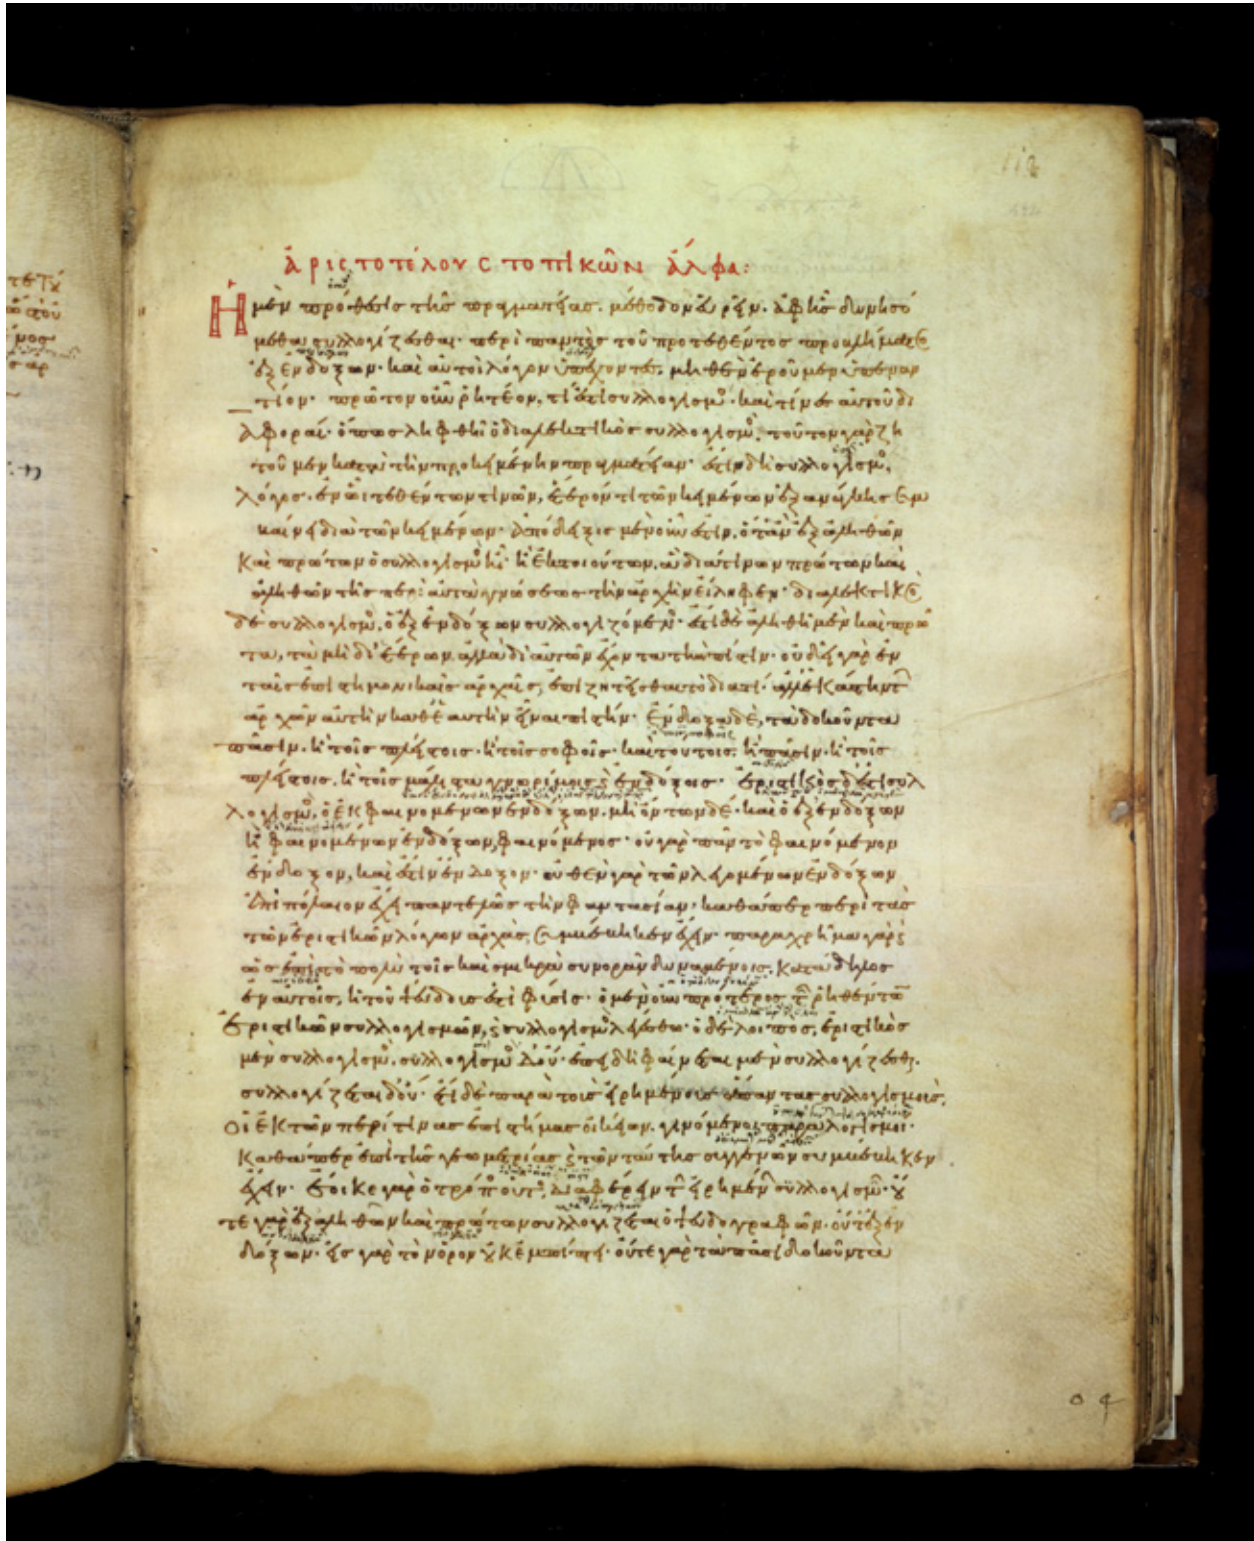 © MiBAC. Biblioteca Nazionale Marciana
112
ἀριστοτέλους τοπικῶν ἄλφα:
Ἡ μὲν πρόθεσις τῆς πραγματείας. μέθοδον εὑρεῖν. ἀφ' ἧς δυνησό
μεθα συλλογίζεσθαι περὶ παντὸς τοῦ προτεθέντος προβλήματος
ἐξ ἐνδόξων· καὶ αὐτοὶ λόγον ὑπέχοντες, μηθὲν ἐροῦμεν ὑπεναν
τίον· πρῶτον οὖν ῥητέον, τί ἐστι συλλογισμὸς· καὶ τίνες αὐτοῦ δι
αφοραί· ὅπως ληφθῆ ὁ διαλεκτικὸς συλλογισμὸς, τοῦτον γὰρ ζη
τοῦμεν κατὰ τὴν προκειμένην πραγματείαν· ἔστι δὴ συλλογισμὸς,
λόγος, ἐν ὧι τεθέντων τινῶν, ἕτερόν τι τῶν κειμένων ἐξ ἀνάγκης συμ
βαίνει διὰ τῶν κειμένων· ἀπόδειξις μὲν οὖν ἐστιν, ὅταν ἐξ ἀληθῶν
καὶ πρώτων ὁ συλλογισμὸς ἦ· ἢ ἐκ τοιούτων, ἃ διά τινων πρώτων καὶ
ἀληθῶν τῆς περὶ αὐτὰ γνώσεως τὴν ἀρχὴν εἴληφεν· διαλεκτικὸς
δὲ συλλογισμὸς, ὁ ἐξ ἐνδόξων συλλογιζόμενος· ἔστι δὲ ἀληθῆ μὲν καὶ πρῶ
τα, τὰ μὴ δι' ἑτέρων ἀλλὰ δι' αὑτῶν ἔχοντα τὴν πίστιν· οὐ δεῖ γὰρ ἐν
ταῖς ἐπιστημονικαῖς ἀρχαῖς, ἐπιζητεῖσθαι τὸ διατί· ἀλλ' ἑκάστην τῶν
ἀρχῶν αὐτὴν καθ' ἑαυτὴν εἶναι πιστήν· ἔνδοξα δὲ, τὰ δοκοῦντα
πᾶσιν. ἢ τοῖς πλείστοις. ἢ τοῖς σοφοῖς· καὶ τούτοις, ἢ πᾶσιν. ἢ τοῖς
πλείστοις. ἢ τοῖς μάλιστα γνωρίμοις καὶ ἐνδόξοις· ἐριστικὸς δέ ἐστι συλ
λογισμὸς, ὁ ἐκ φαινομένων ἐνδόξων, μὴ ὄντων δέ· καὶ ὁ ἐξ ἐνδόξων
ἢ φαινομένων ἐνδόξων, φαινόμενος· οὐ γὰρ πᾶν τὸ φαινόμενον
ἔνδοξον, καὶ ἔστιν ἔνδοξον· οὐθὲν γὰρ τῶν λεγομένων ἐνδόξων
ἐπιπόλαιον ἔχει παντελῶς τὴν φαντασίαν· καθάπερ περὶ τὰς
τῶν ἐριστικῶν λόγων ἀρχὰς, συμβέβηκεν ἔχειν· παραχρῆμα γὰρ καὶ
ὡς ἐπὶ τὸ πολὺ τοῖς καὶ σμικρὰ συνορᾶν δυναμένοις, κατάδηλος
ἐν αὐτοῖς, ἡ τοῦ ψεύδους ἐστὶ φύσις· ὁ μὲν οὖν πρότερος τῶν ῥηθέντων
ἐριστικῶν συλλογισμῶν, καὶ συλλογισμὸς λεγέσθω· ὁ δὲ λοιπὸς, ἐριστικὸς
μὲν συλλογισμὸς, συλλογισμὸς δ' οὔ· ἐπειδὴ φαίνεται μὲν συλλογίζεσθαι.
συλλογίζεται δ' οὔ· ἔτι δὲ παρὰ τοὺς εἰρημένους ἅπαντας συλλογισμοὺς,
οἱ ἐκ τῶν περί τινας ἐπιστήμας οἰκείων, γινόμενοι παραλογισμοί·
καθάπερ ἐπὶ τῆς γεωμετρίας καὶ τῶν ταύτης συγγενῶν συμβέβηκεν
ἔχειν· ἔοικε γὰρ ὁ τρόπος οὗτος, διαφέρειν τῶν εἰρημένων συλλογισμῶν· οὔ
τε γὰρ ἐξ ἀληθῶν καὶ πρώτων συλλογίζεται ὁ ψευδογραφῶν· οὔτ' ἐξ ἐν
δόξων· εἰς γὰρ τὸν ὅρον οὐκ ἐμπίπτει· οὔτε γὰρ τὰ πᾶσι δοκοῦντα